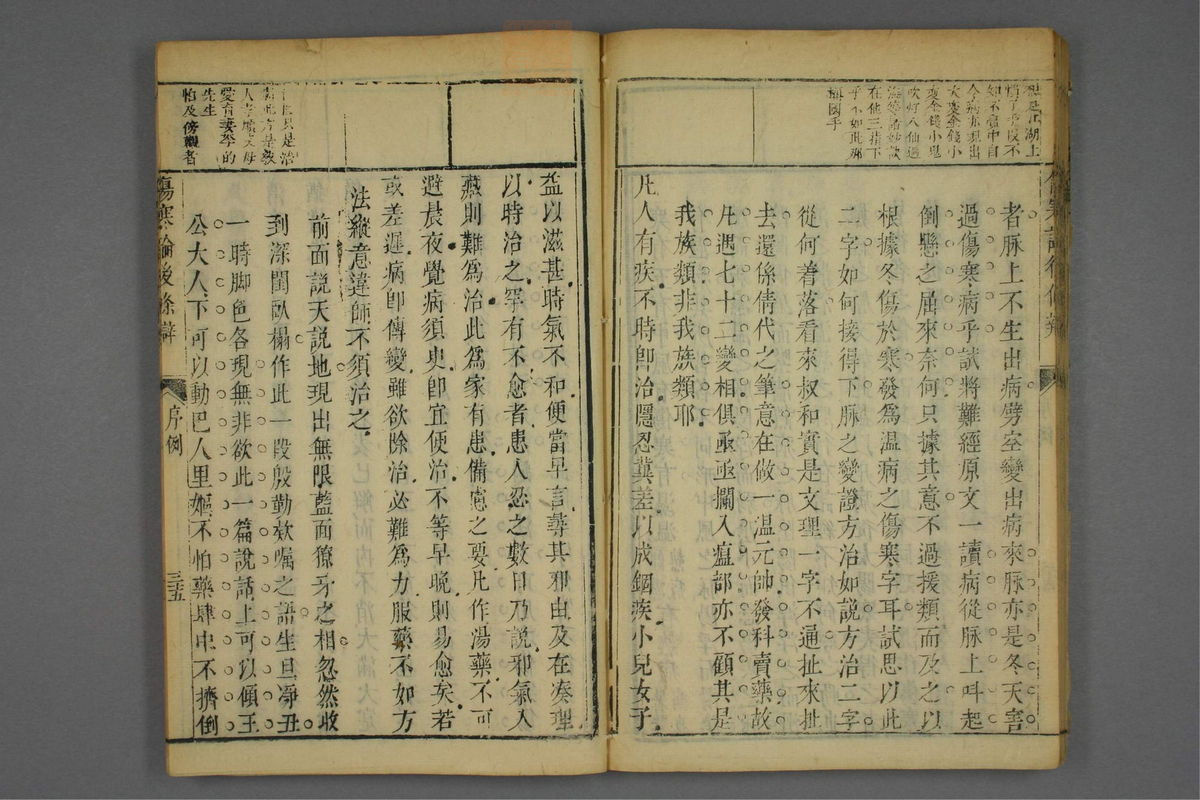 者脉上不生出病劈空變出病來脉亦是冬天害
過傷寒病乎試將難經原文一讀病從脉上呌起
倒懸之屈來奈何只據其意不過援類而及之以
根據冬傷於寒發爲温病之傷寒字耳試思以此
二字如何接得下脉之變證方治如説方治二字
從何着落看來叔和實是文理一字不通扯來扯
去還係倩代之筆意在做一温元帥發科賣藥故
凡遇七十二變相俱亟亟攔入瘟部亦不顧其是
我族類非我族類耶
凡人有疾不時卽治隱忍兾差以成錮疾小兒女子
益以滋甚時氣不和便當早言尋其邪由及在凑理
以時治之罕有不愈者患人忍之數日乃說邪氣入
藏則難爲治此爲家有患備慮之要凡作湯藥不可
避晨夜覺病須臾卽宜便治不等早晩則易愈矣若
或差遲病卽傳變雖欲除治必難爲力服藥不如方
法縱意違師不須治之
前面説天説地現出無限藍面獠牙之相忽然收
到深閨臥榻作此一段殷勤欵囑之語生旦淨丑
一時脚色各現無非欲此一篇說話上可以傾王
公大人下可以動巴人里嫗不怕藥肆中不擠倒
傷寒論後條辯
序例
三五
江湖上
今病亦現出
大變金錢小
變金錢小鬼
吹灯八仙過
在他三指下
乎不如此那
稱國手
只是治
愛育妻孥的
先生
怕及傍觀者